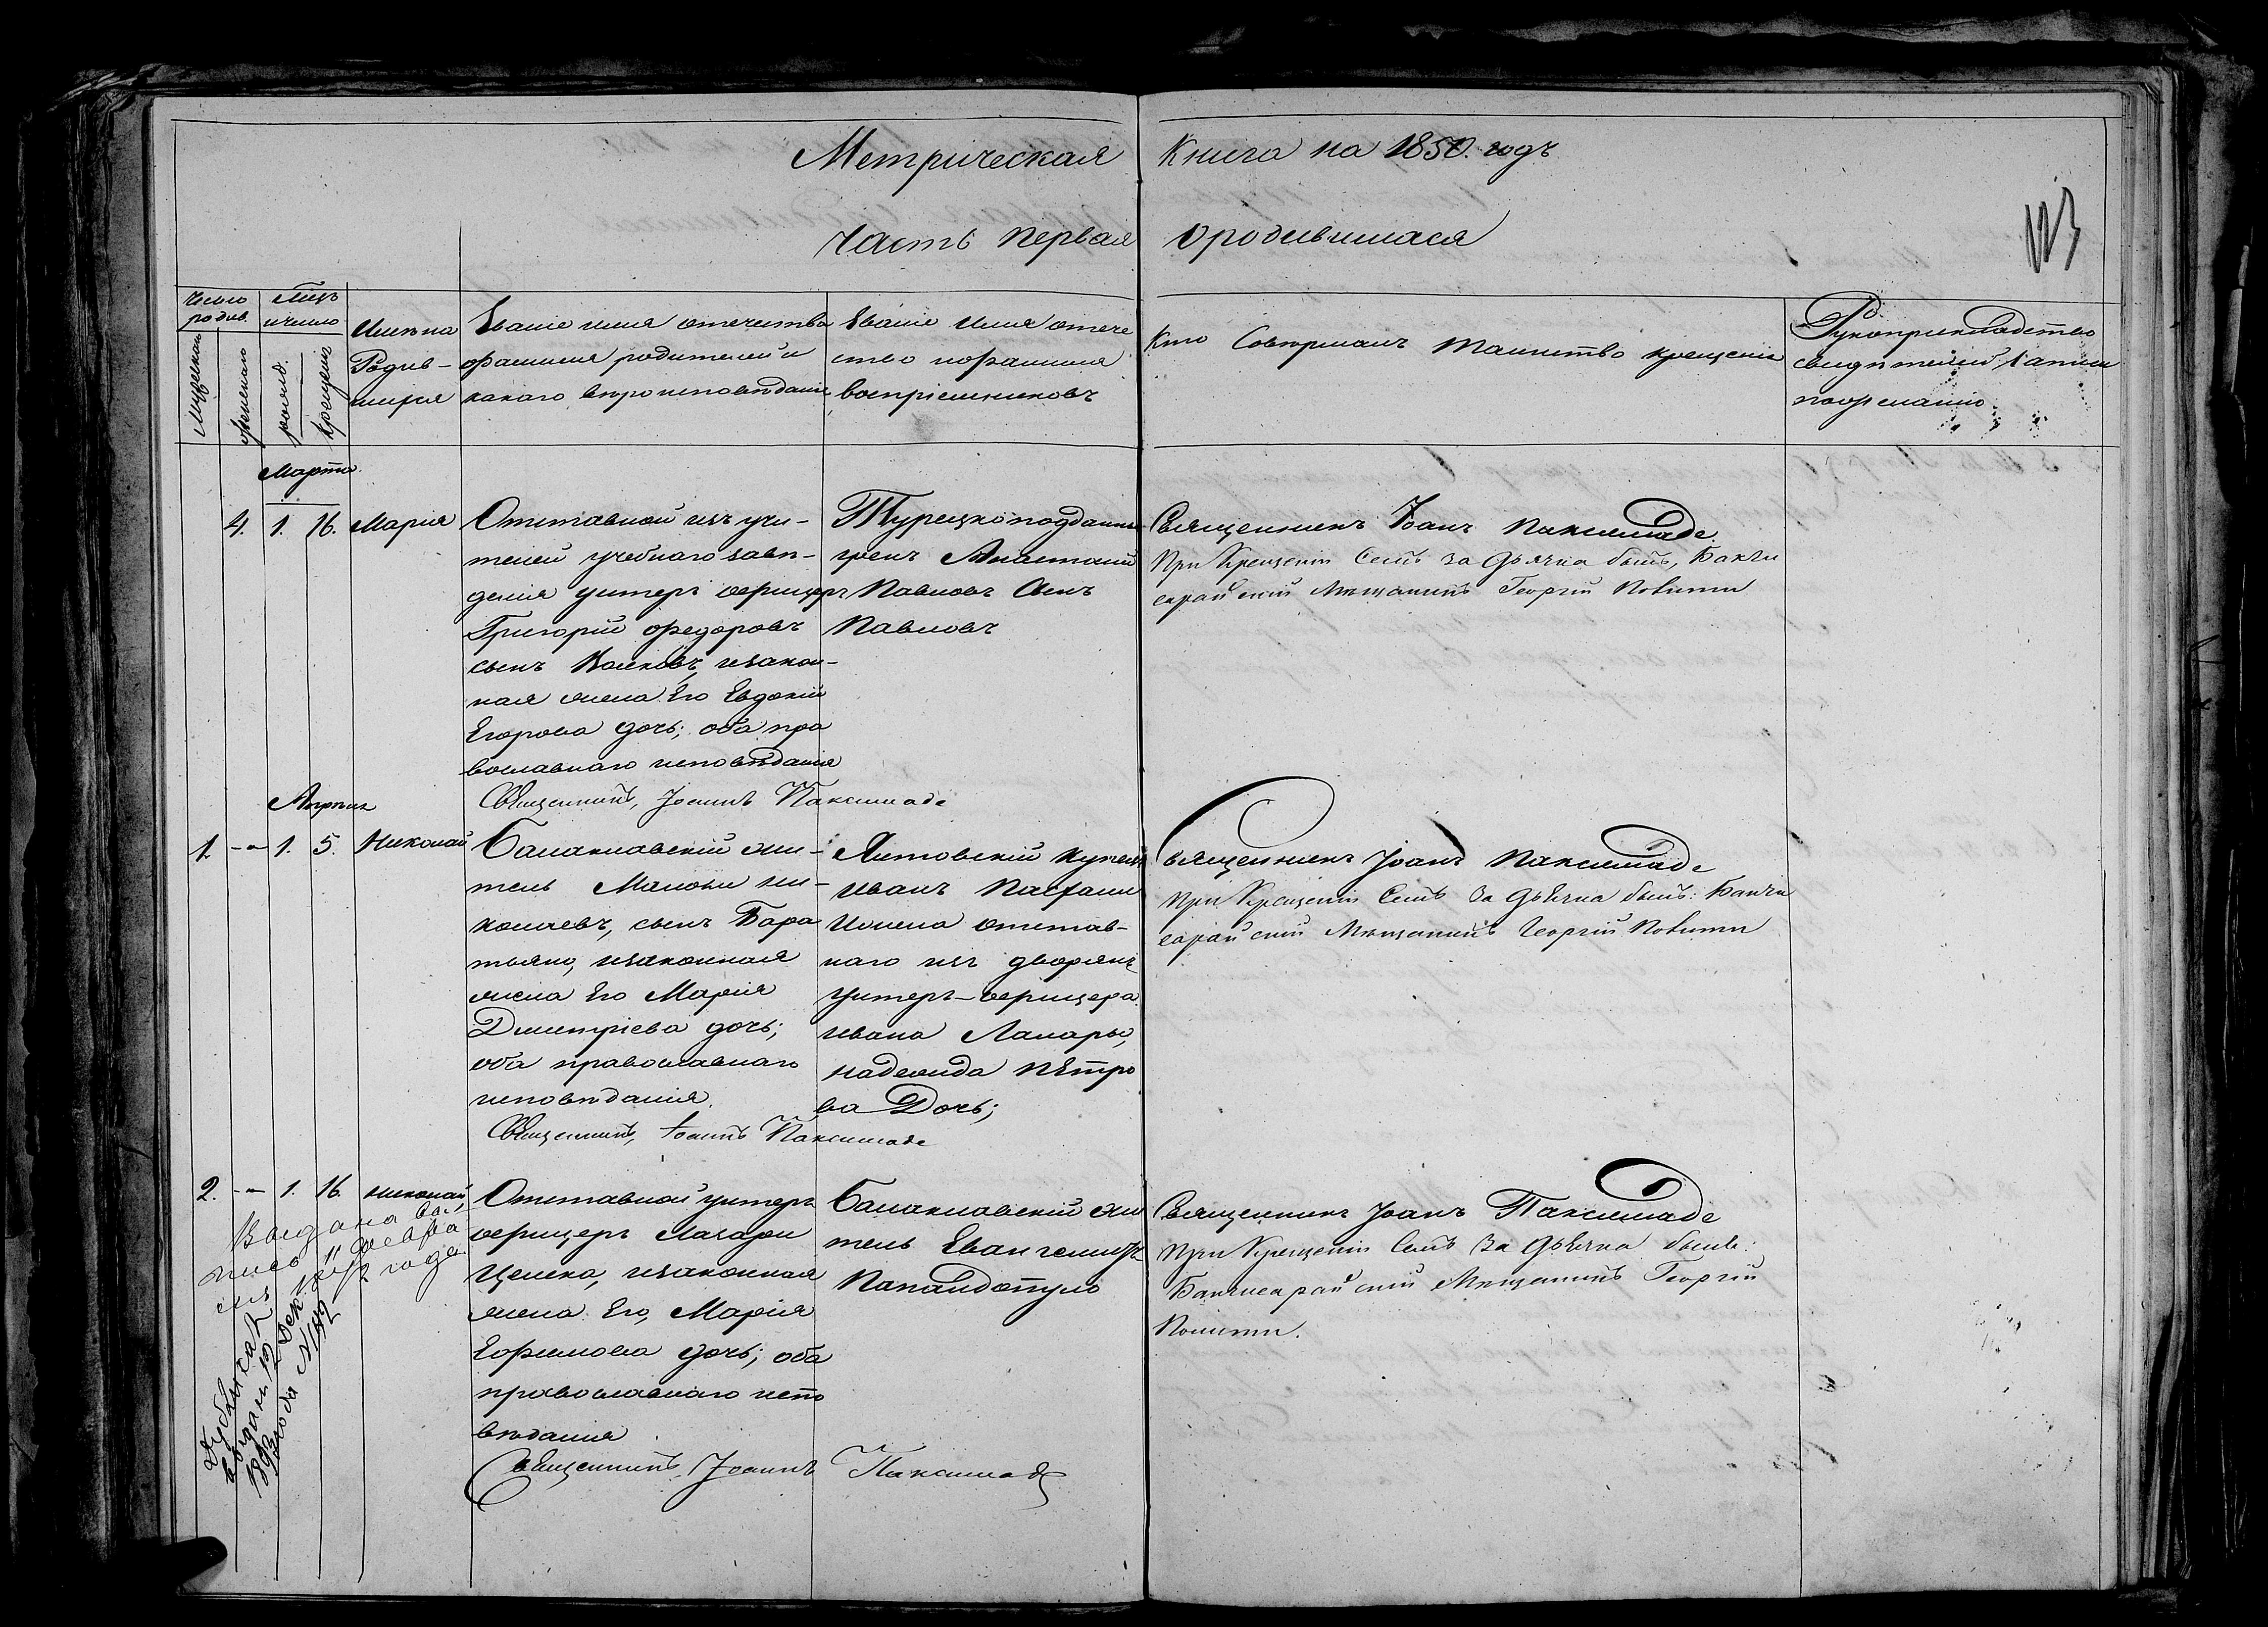 Метрическая Книга на 1850. годъ
123
Часть Первая О родившихся
Число родив.
Мужеска
женска
Мцъ и число
рожд.
крещен
Имѣна
Родив-
шихся
Званіе имя отечество
фамилія родителей и
какаго вероисповѣданія
Званіе Имя отече
ство и фамилія
воспріемниковъ
Кто Совершалъ Таинство крещенія
Рукоприкладство
свидѣтелей записи
по желанію.
Марта
4. 1. 16. Марія
Отставной изъ учи-
телей учебнаго заве-
денія унтеръ офицеръ
Григорій Федоровъ
сынъ Волковъ, изакон-
ная жена Его Евдокія
Егорова дочь; оба пра
вославнаго исповѣданія
Турецкоподданный
грекъ Анастасій
Павловъ Сынъ
Павловъ
Священникъ Іоанъ Паксимаде.
При Крещеніи Семъ за Дьячка былъ, Бакчи
сарайскій Мѣщанинъ Георгій
Священникъ, Іоаннъ Паксимаде
Апрѣля
1. -"- 1. 5. Николай
Балаклавскій жи-
тель Маноли Ни-
колаевъ, сынъ Бара
тьяно, изаконная
жена Его Марія
Дмитріева дочь;
оба православнаго
исповѣданія.
Ялтовскій купецъ
Иванъ
Ижена отстав-
наго изъ дворянъ
унтеръ-офицера
Ивана
Надежда Пѣтро
ва Дочь;
Священникъ Іоанъ Паксимаде
При Крещеніи Семъ За Дьячка былъ: Бакчи
сарайскій Мѣщанинъ Георгій
Священникъ, Іоаннъ Паксимаде
2. -"- 1. 16. Николай
Отставной унтеръ
офицеръ Лазари
Целика, изаконная
жена Его, Марія
Ефимова дочь; оба
православнаго испо
вѣданія
Балаклавскій жи
тель Евангелинъ
Папандопуло
Священникъ Іоанъ Паксимаде
При Крещеніи Семъ За Дьячка былъ:
Бакчисарайскій Мѣщанинъ Георгій
Священникъ, Іоаннъ Паксимаде
Выдана
пись 11 Февра
года
Дубликатъ
выданъ 19 Дек.
года №